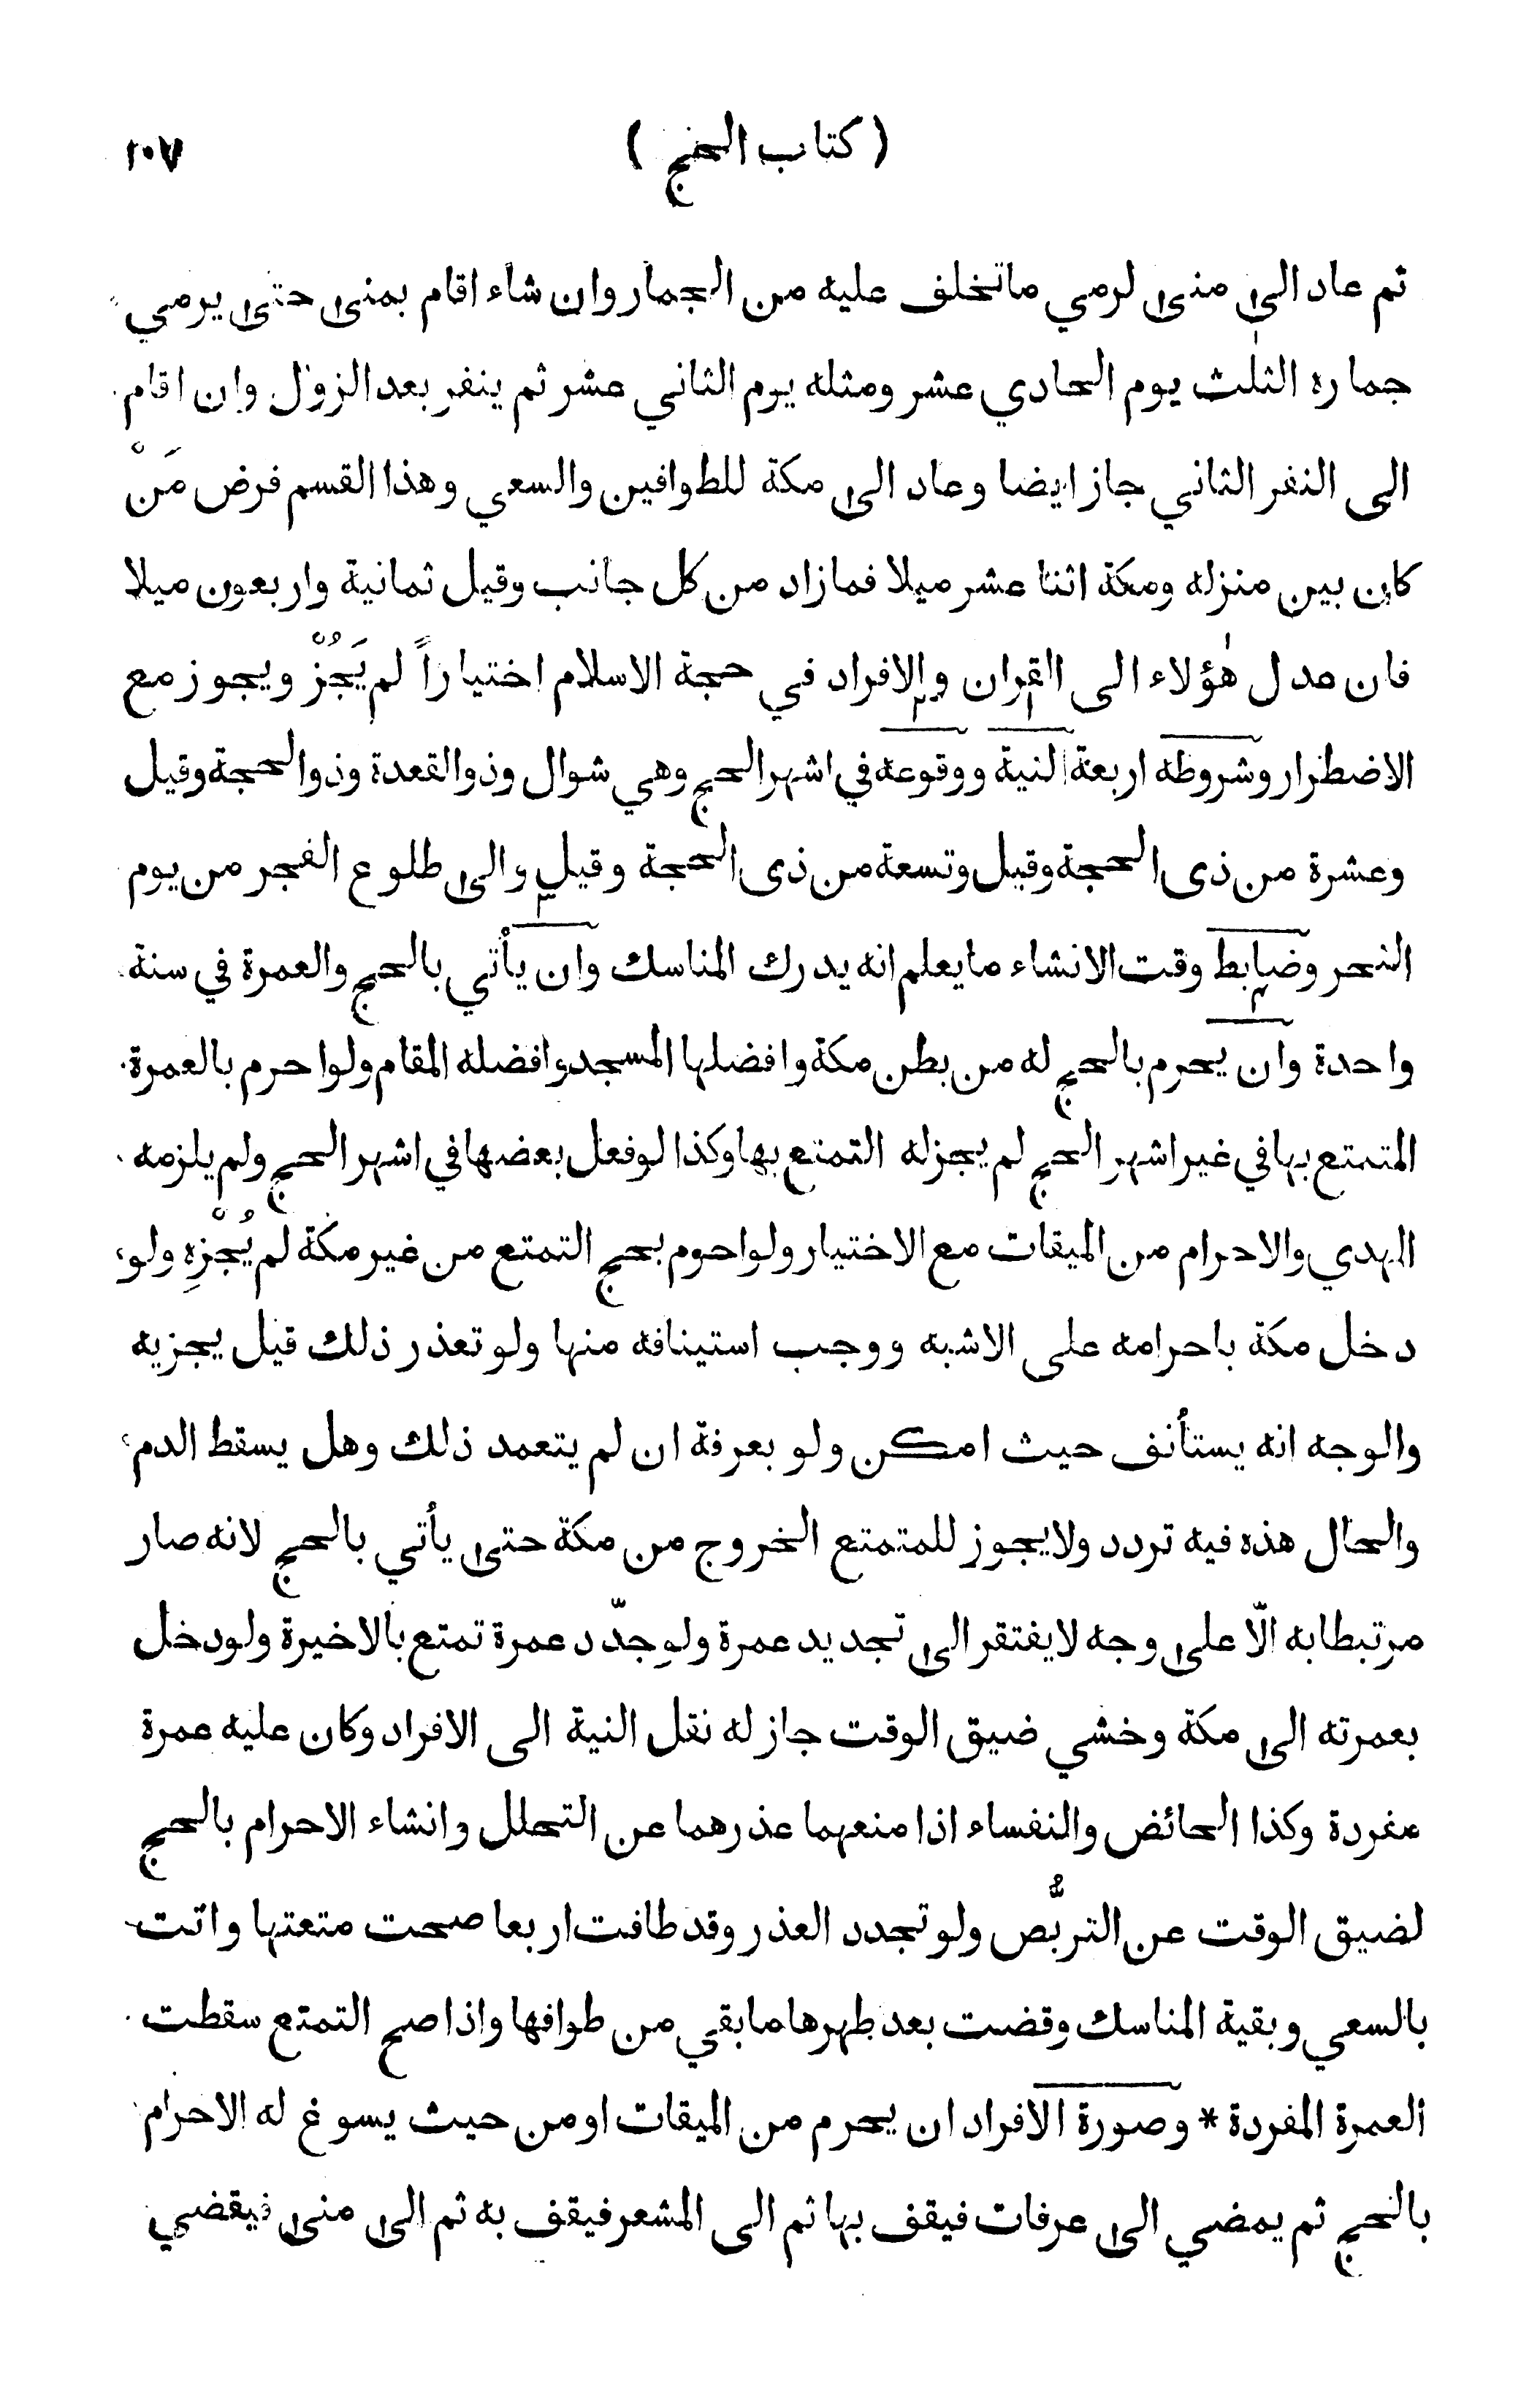 ( كتاب الحج ) ١٠٧
ثم عاد الى منى لرمي ماتخلف عليه من الجمار وان شاء اقام بمنى حتى يرمي
جماره الثلٰث يوم الحادي عشر ومثله يوم الثاني عشر ثم ينفر بعد الزوال وان اقام
الى النفر الثاني جاز ايضا وعاد الى مكة للطوافين والسعي وهذا القسم فرض مَنْ
كان بين منزله ومكة اثنا عشر ميلا فمازاد من كل جانب وقيل ثمانية واربعون ميلا
فان عدل هٰؤلاء الى القران والافراد في حجة الاسلام اختياراً لم يَجُزْ ويجوز مع
الاضطرار وشروطه اربعة النية ووقوعه في اشهر الحج وهي شوال وذوالقعدة وذوالحجة وقيل
وعشرة من ذى الحجة وقيل وتسعة من ذى الحجة وقيل والى طلوع الفجر من يوم
النحر وضابط وقت الانشاء مايعلم انه يدرك المناسك وان يأتي بالحج والعمرة في سنة
واحدة وان يحرم بالحج له من بطن مكة وافضلها المسجد وافضله المقام ولواحرم بالعمرة
المتمتع بها في غير اشهر الحج لم يجزله التمتع بها وكذا لوفعل بعضها في اشهر الحج ولم يلزمه
الهدي والاحرام من الميقات مع الاختيار ولواحوم بحج التمتع من غير مكة لم يُجْزِهِ ولو
دخل مكة باحرامه على الاشبه ووجب استينافه منها ولو تعذر ذلك قيل يجزيه
والوجه انه يستأنف حيث امكن ولو بعرفة ان لم يتعمد ذلك وهل يسقط الدم
والحال هذه فيه تردد ولايجوز للمتمتع الخروج من مكة حتى يأتي بالحج لانه صار
مرتبطا به الّا على وجه لايفتقر الى تجديد عمرة ولو جدّد عمرة تمتع بالاخيرة ولودخل
بعمرته الى مكة وخشي ضيق الوقت جاز له نقل النية الى الافراد وكان عليه عمرة
مفردة وكذا الحائض والنفساء اذا منعهما عذرهما عن التحلل وانشاء الاحرام بالحج
لضيق الوقت عن التربُّص ولو تجدد العذر وقد طافت اربعا صحت متعتها واتت
بالسعي وبقية المناسك وقضت بعد طهرها مابقي من طوافها واذا صح التمتع سقطت
العمرة المفردة * وصورة الافراد ان يحرم من الميقات اومن حيث يسوغ له الاحرام
بالحج ثم يمضي الى عرفات فيقف بها ثم الى المشعر فيقف به ثم الى منى فيقضي